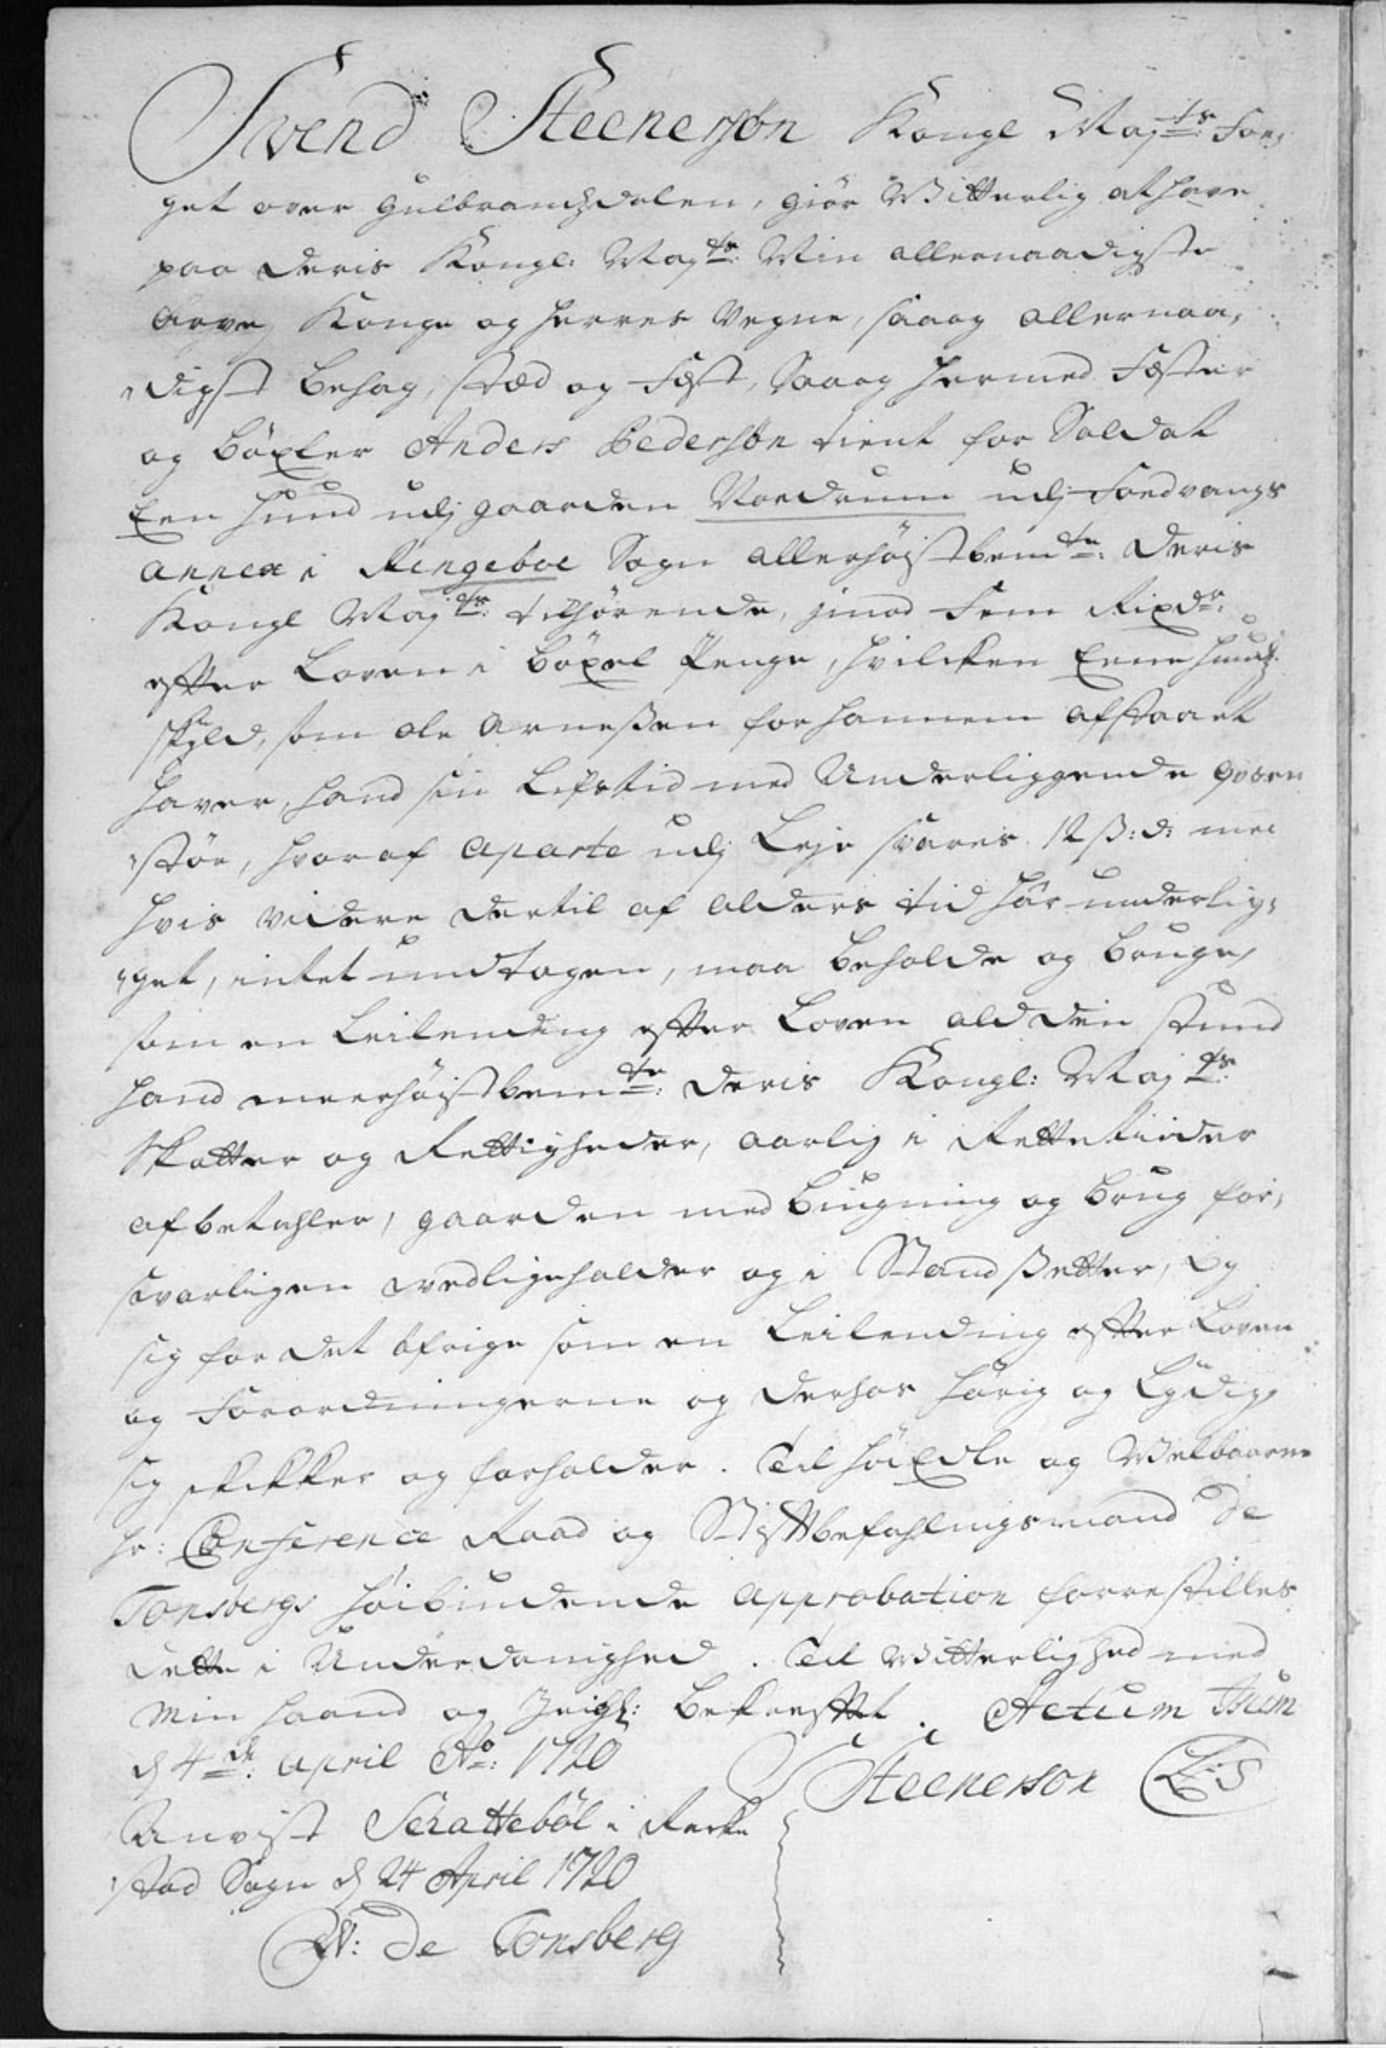 Svend Steenersøn Kongl Maj:ts Fou,
get over Gulbrandsdalen, giør Witterlig at have
paa Deris Kongl: Maj:ts Min allernaadigste
Arve Konge og Herres Vegne, saa og allernaa,
digst behag, sted og Fæst, Saa og hermed Fæster
og böxler Anders Pedersøn tient for Soldat
Een Hund udj gaarden Rordrum udj Fordvangs
annex i Ringeboe Sogn allerhøistbem:te Deris
Kongl Maj:ts tilhørende, jmod Fem Rixdr:
efter Loven i böxel Penge, hvilken Eene Hunds
skyld, som Ole Arneßen for hannem afstaaet
haver, hand sin Lifstid med Underliggende
støe, hvoraf aparte udj Leje svares 12 ß: d: med
hvis videre dertil af alders tid hør underlig,
get, intet undtagen, maa beholde og bruge,
som en Leilending efter Loven ald den stund
hand meerhøistbem:te Deris Kongl: Maj:ts
Skatter og Rettigheder, aarlig i Rette tiider
afbetahler, gaarden med bøugning og brug for,
svarligen vedligeholder og i Stand ßetter, og
sig for det øfrige som en Leilending efter Loven
og Forordningerne og derhos hørig og Lydig,
sig skikker og forholder. Til HöiEdle og Welbaarne
Hr: Conference Raad og Stiftbefahlingsmand De
Tonsbergs höibiudende approbation forrestilles
dette i Underdanighed. Til Witterlighed med
min haand og Zeigl: bekreftet. Actum Thum
d 4de: April Ao: 1720
Steenerson L:S
Anvist Scrattebøl i
stad Sogn d 24 April 1720
W: De Tonsberg